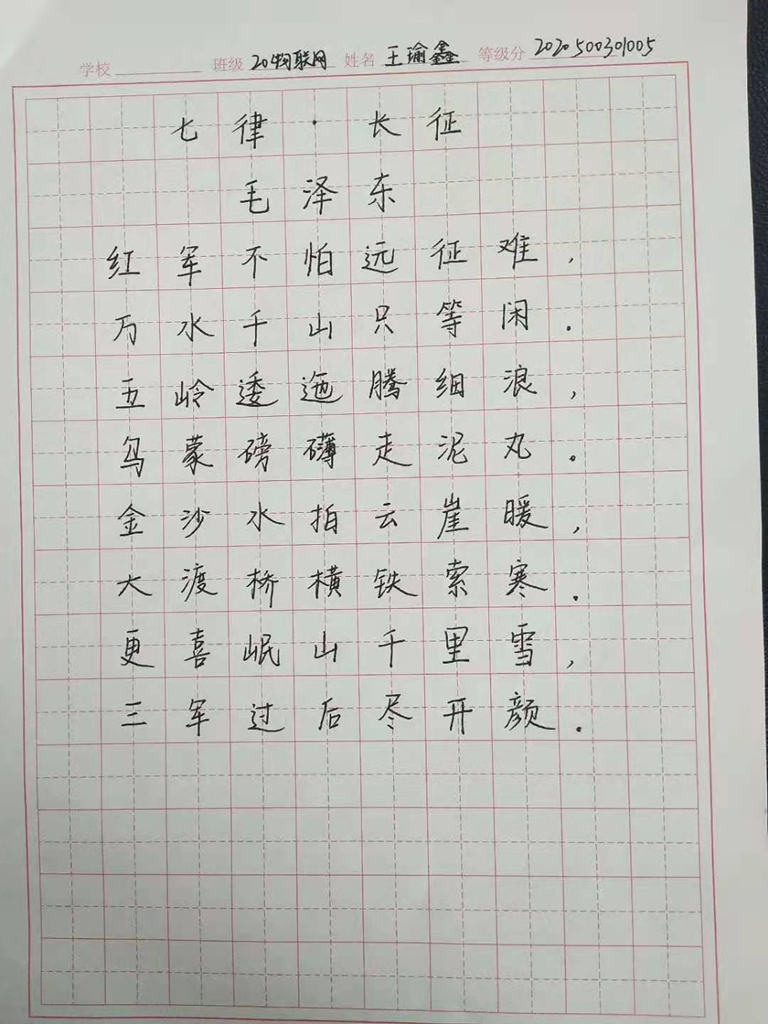 学校 班级 20物联网 姓名 王瑜鑫 等级分 2020500301005
七律·长征
毛泽东
红军不怕远征难，
万水千山只等闲．
五岭逶迤腾细浪，
乌蒙磅礴走泥丸．
金沙水拍云崖暖，
大渡桥横铁索寒．
更喜岷山千里雪，
三军过后尽开颜．